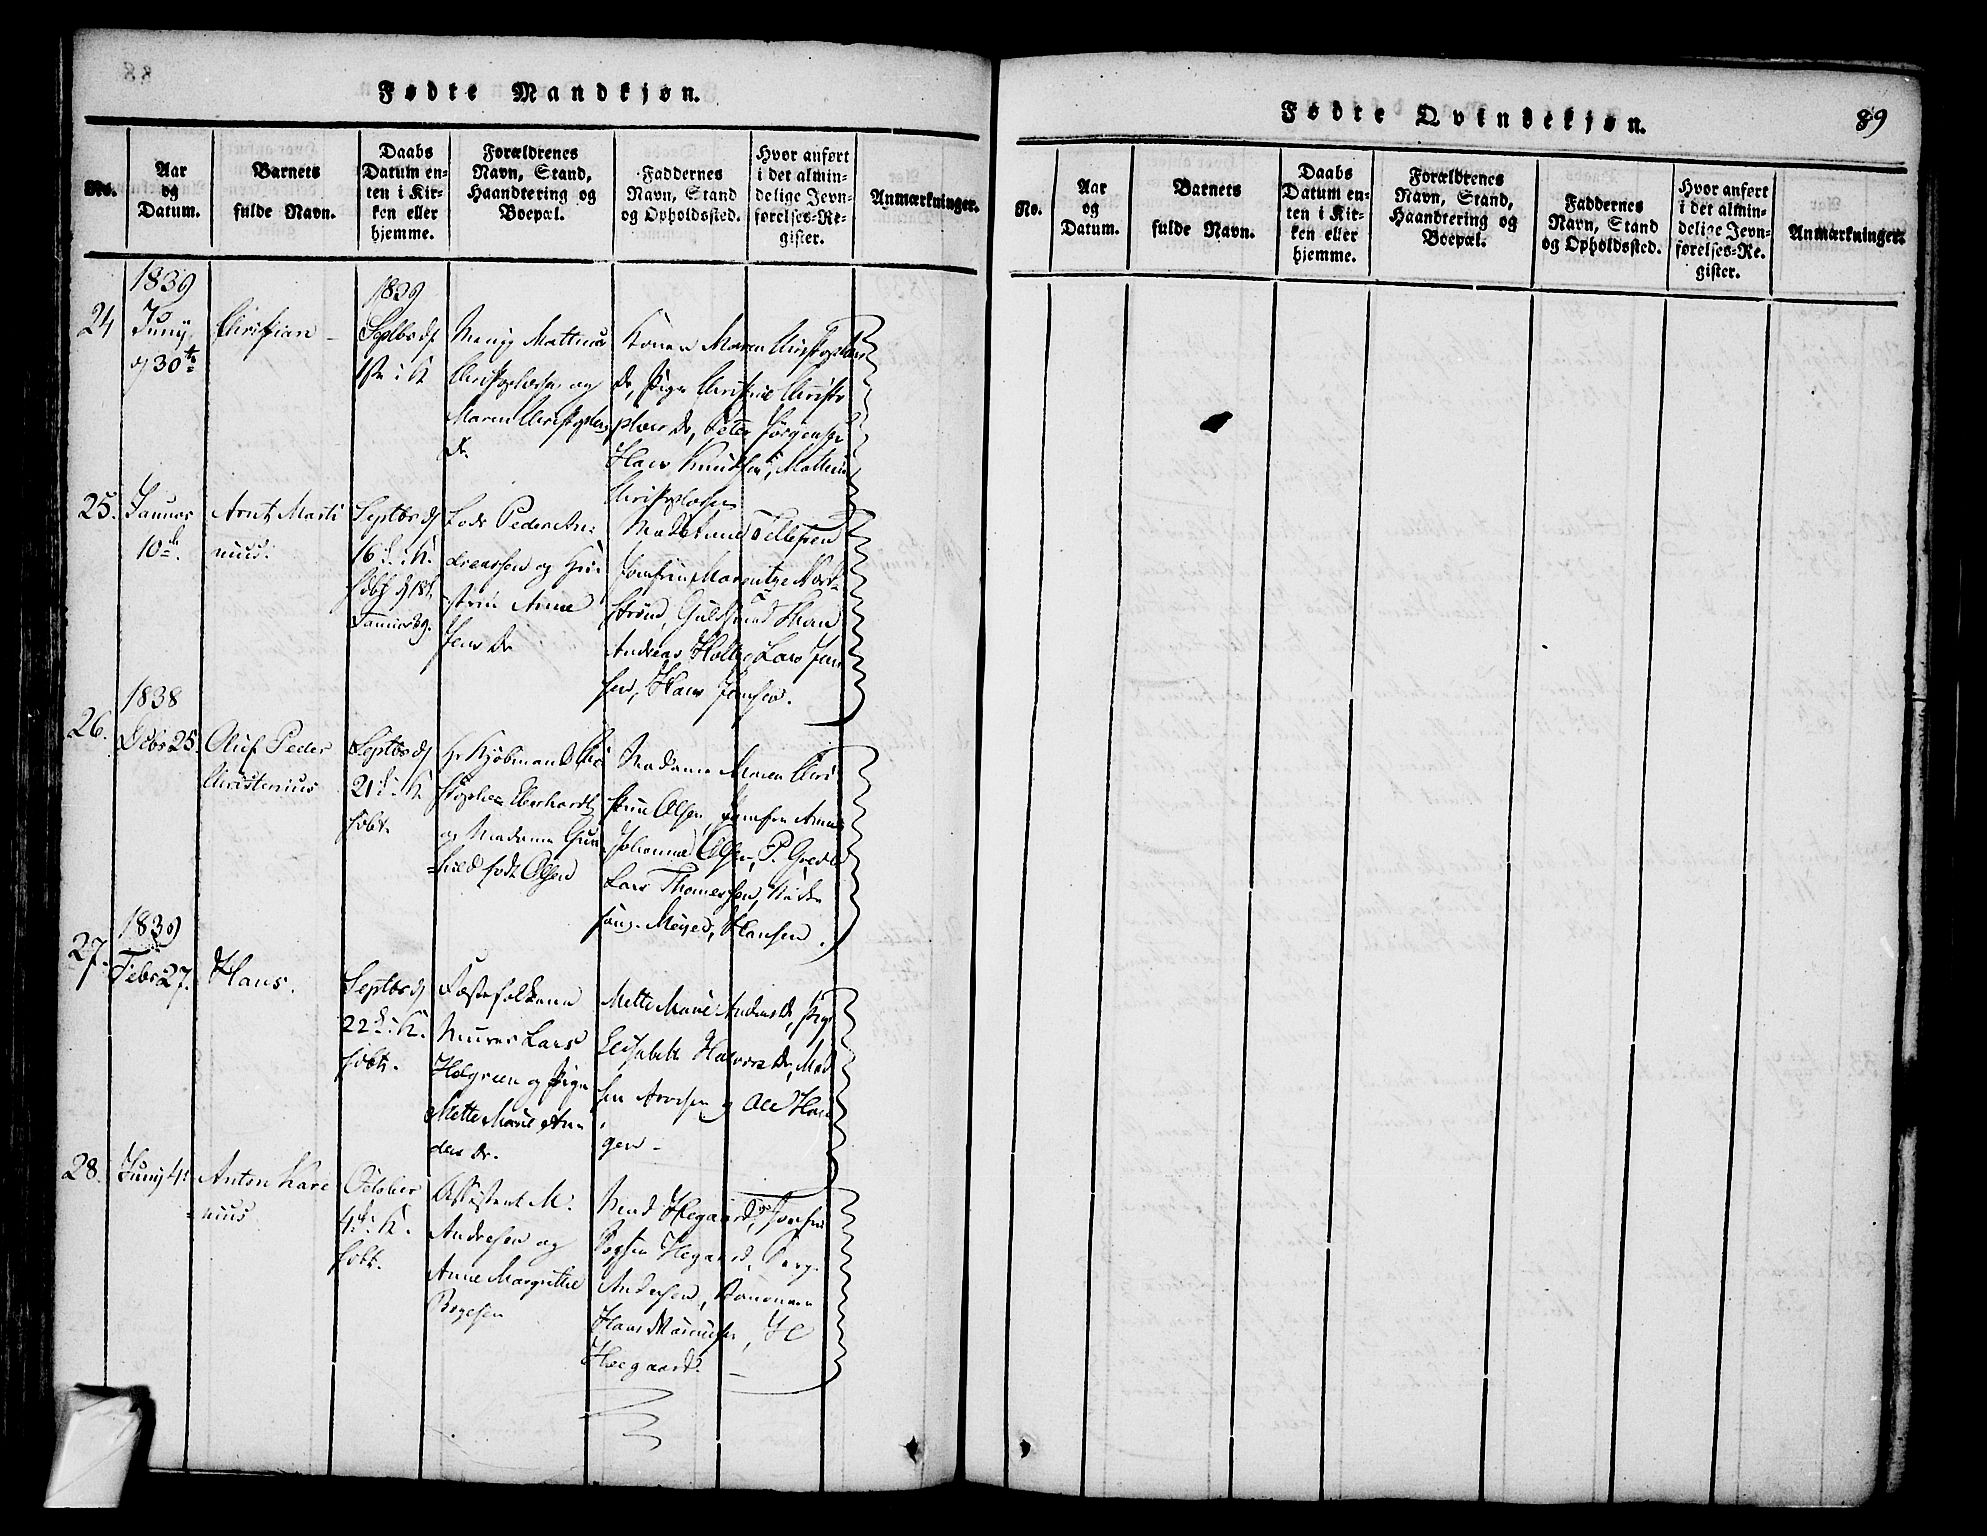 Fødte Mandkjøn.
No.
Aar
og
Datum.
Barnets
fulde Navn.
Daabs
Datum en-
ten i Kir-
ken eller
hjemme.
Forældrenes
Navn, Stand,
Haandtering og
Boepæl.
Faddernes
Navn, Stand
og Opholdssted.
Hvor anført
i det almin-
delige Jevn-
førelses-Re-
gister.
Anmærkninger.
24
1839
Juny
30te
Christian
1839
Septbr d
Christophersen og
Maren Christophers
Dr.
Konen Maren Christophers
Dr, Pige Christine Christo
phers Dr, Peter Jørgensen
Hans Knudsen, Mathias
Christophersen
25.
Januar
10de.
Arnt Marti
nius.
Septbr d
16de i K.
døbt d 18de
Januar 39.
Lods Peder An-
dreassen og Hu-
strue Anne
Jens Dr
Madame Tellefsen
Jomfrue Marentze Nord-
strøm, Guldsmed
Andreas Holte, Lars Jen
sen, Hans Jensen.
26.
1838
Dcbr 25.
Oluf Peder
Christenius
Septbr d
21de i K
døbt.
Hr Kjøbmand Chri
stopher Eberhardt
og Madame Gun
hild født Olsen
Madame Maren Chri
stine Olsen, Jomfru Anne
Johanne Olsen, P. Gredt
Lars Thomassen,
Meyer, Hansen.
27.
1839
Febr 27.
Hans.
Septbr d
22de i K.
døbt.
Fæstefolkene
Murer Lars
Holgreen og Pige
Mette Marie An-
ders Dr.
Mette Marie Anders Dr, Pige
Elisabeth Halvors Dr, Mad
sen Arvesen og Ole Hau
gen
28.
Juny 4de
Anton Kare
nius
October
4de i K.
døbt.
Assistent M.
Andresen og
Anne Margrethe
Bogesen
Mad Hegaard, Jomfrue
Hegaard,
Andersen,
Hans Marcussen, H C
Hoegaard.
Fødte Qvindekjøn.
89
No.
Aar
og
Datum.
Barnets
fulde Navn.
Daabs
Datum en-
ten i Kir-
ken eller
hjemme.
Forældrenes
Navn, Stand,
Haandtering og
Boepæl.
Faddernes
Navn, Stand
og Opholdssted.
Hvor anført
i det almin-
delige Jevn-
førelses-Re-
gister.
Anmærkninger.